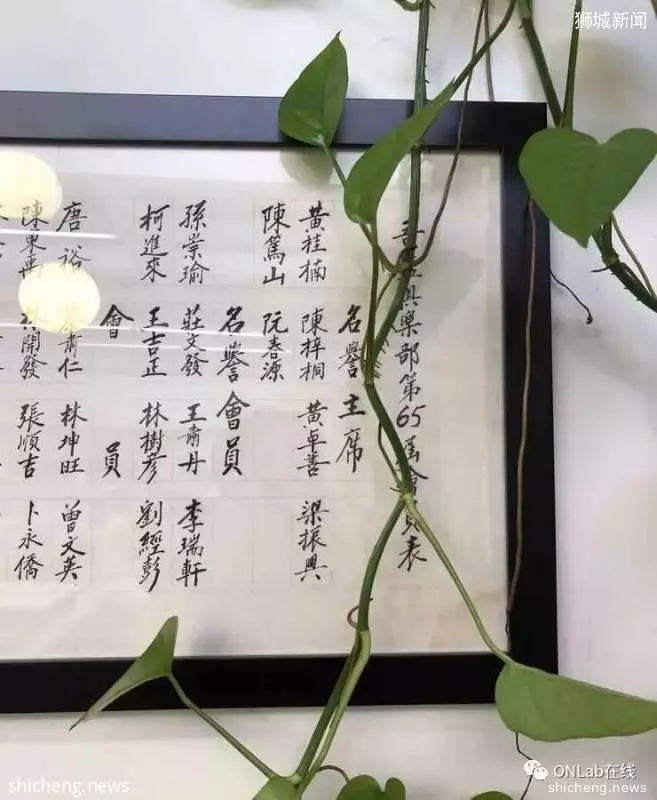 狮城新闻
吾廬俱樂部第65屆會員表
名譽主席
黃桂楠 陳梓桐 黃卓善 梁振興
陳篤山 阮春源
名譽會員
孫崇瑜 莊文發 王肅丹 李瑞軒
柯進來 王吉正 林樹彥 劉經彭
會員
唐裕 肅仁 林坤旺 曾文英
陳東 開發 張順吉 卜永僑
ONLab在线
shicheng.news
shicheng.news